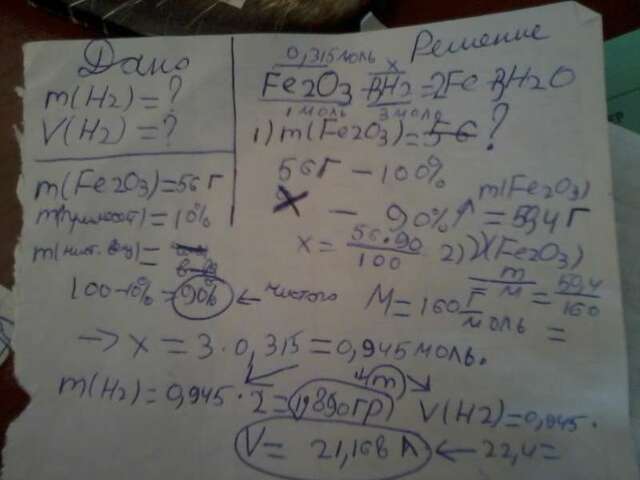 Дано
m(H2) = ?
V(H2) = ?
m(Fe2O3) = 56 г
= 10%
100-10% = 90% ← чистого
Решение
0,315 моль x
Fe2O3 + 3H2 = 2Fe 3H2O
1 моль 3 моль
1) m(Fe2O3) = 56 ?
56 г - 100%
X - 90% m(Fe2O3) = 50,4 г
x = 56 • 90 / 100 2) (Fe2O3)
m / M = 50,4 / 160
M = 160 г / моль =
→ x = 3 • 0,315 = 0,945 моль.
m(H2) = 0,945 • 2 = 1,890 гр (m) V(H2) = 0,945 •
V = 21,168 л ← 22,4 =